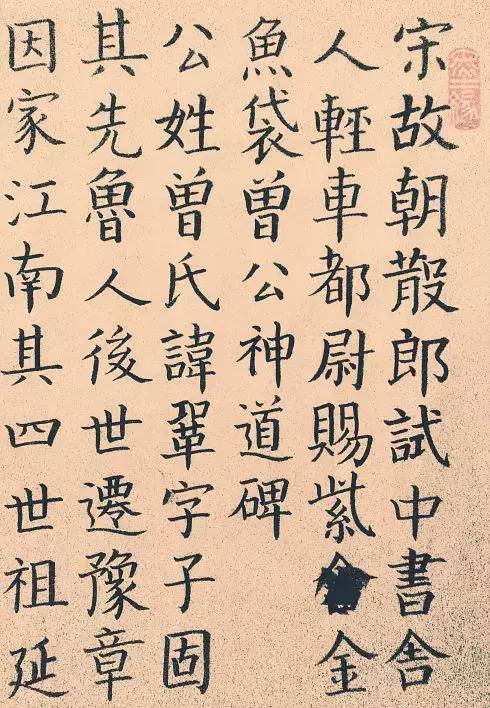 宋故朝散郎試中書舍
人輕車都尉賜紫金
魚袋曾公神道碑
公姓曾氏諱鞏字子固
其先魯人後世遷豫章
因家江南其四世祖延